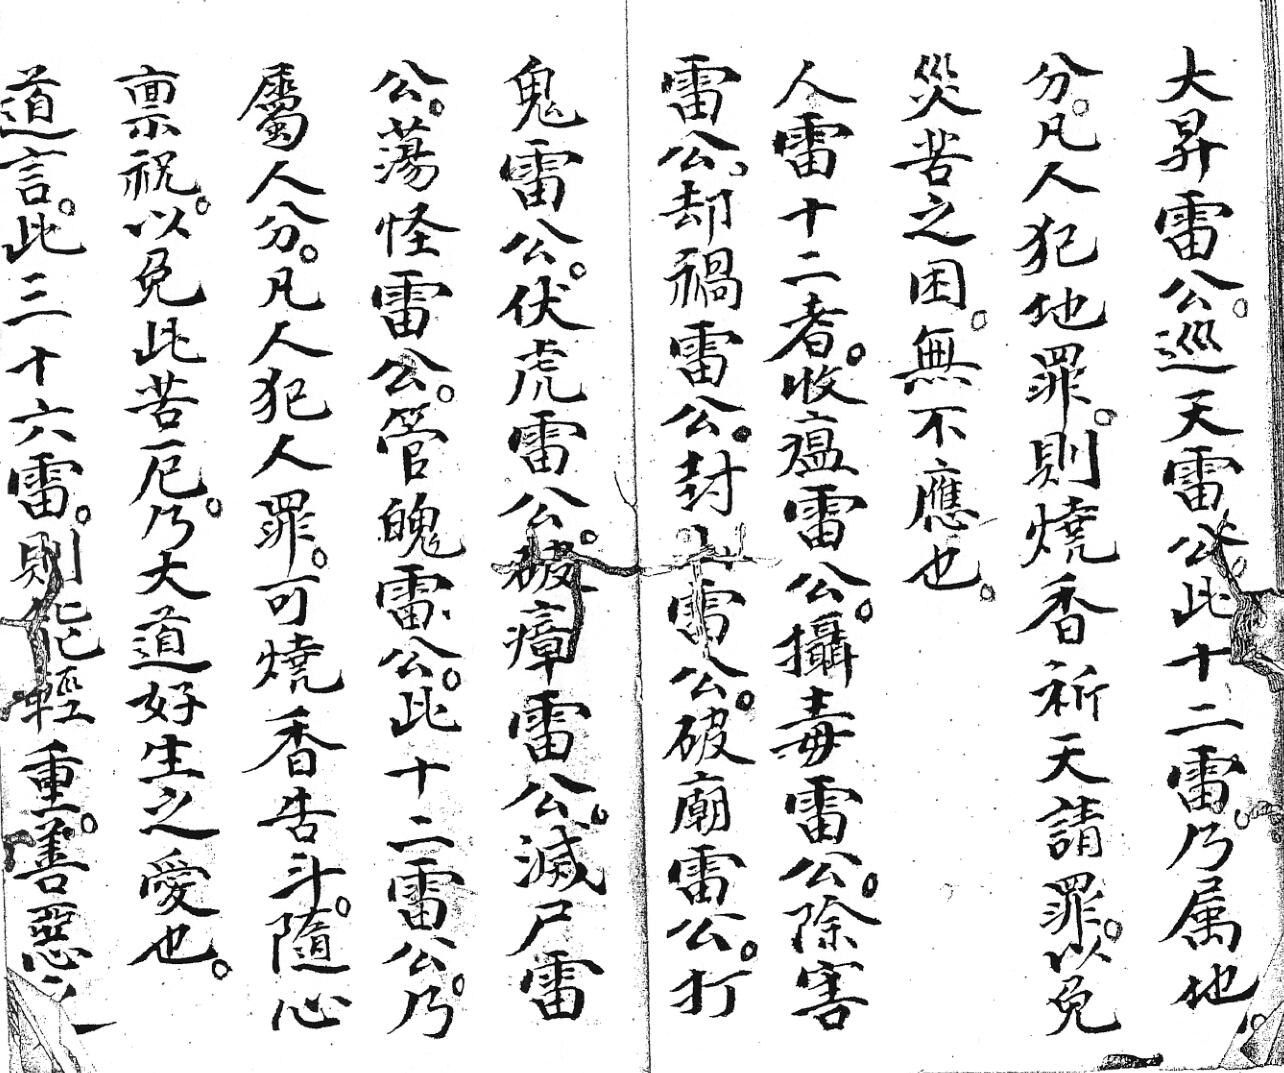 大昇雷公。巡天雷公。此十二雷。乃属地
分。凡人犯地罪。則燒香祈天請罪。以免
災苦之困。無不應也。
人雷十二者。收瘟雷公。攝毒雷公。除害
雷公。却禍雷公。封山雷公。破廟雷公。打
鬼雷公。伏虎雷公。破瘴雷公。滅尸雷
公。蕩怪雷公。管魄雷公。此十二雷公。乃
屬人分。凡人犯人罪。可燒香告斗。隨心
禀祝。以免此苦厄。乃大道好生之愛也。
道言。此三十六雷。則 輕重。善惡